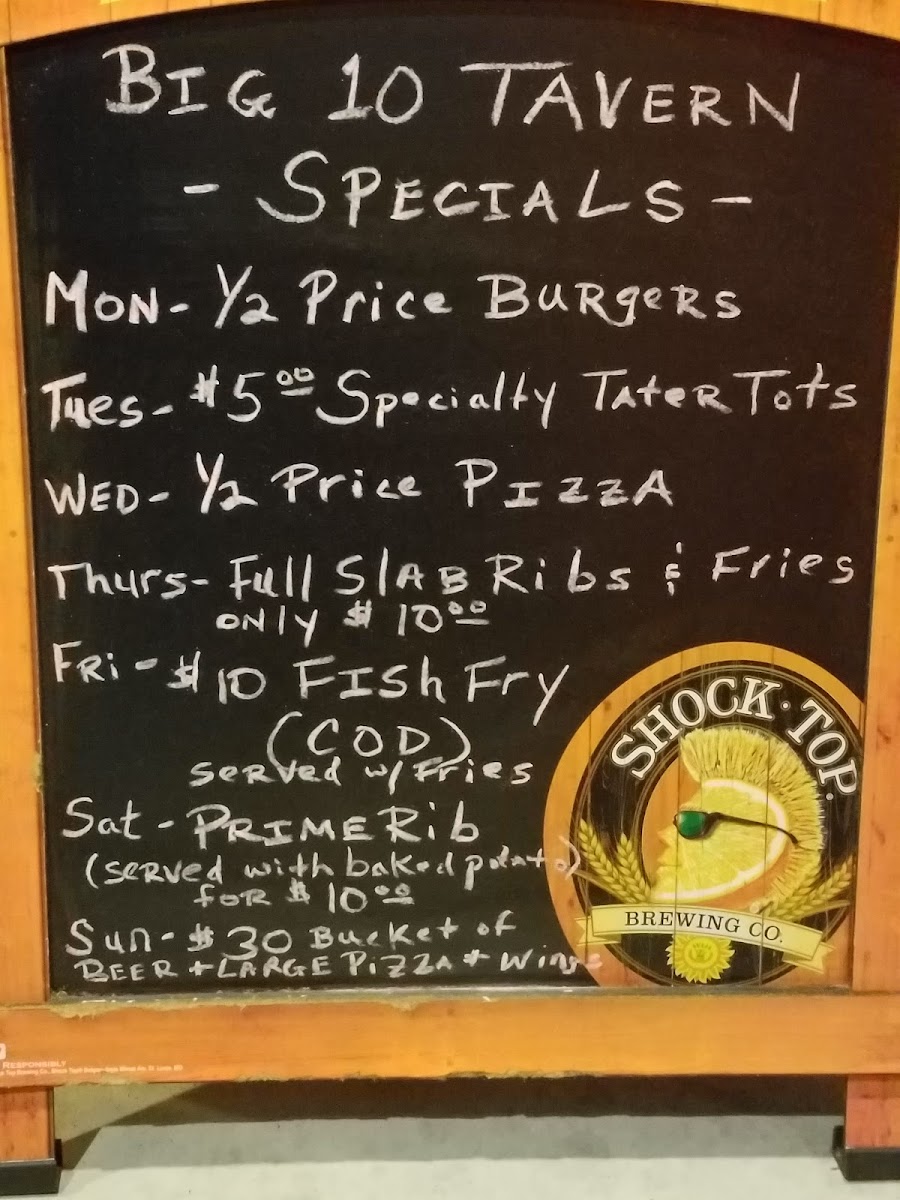 BIG 10 TAVERN
- SPECIALS -
MON- 1/2 Price BURgERS
Tues- $5.00 Specialty TATER Tots
WED- 1/2 Price PIZZA
Thurs- Full SlAB Ribs & Fries
ONly $10.00
FRi - $10 FISh Fry
(COD)
served w/ Fries
Sat - PRIME Rib
(served with baked potato)
foR $10.00
Sun- $30 Bucket of
BEER + LARGE PiZZA + Wings
SHOCK·TOP.
BREWING CO.
RESPONSIBLY